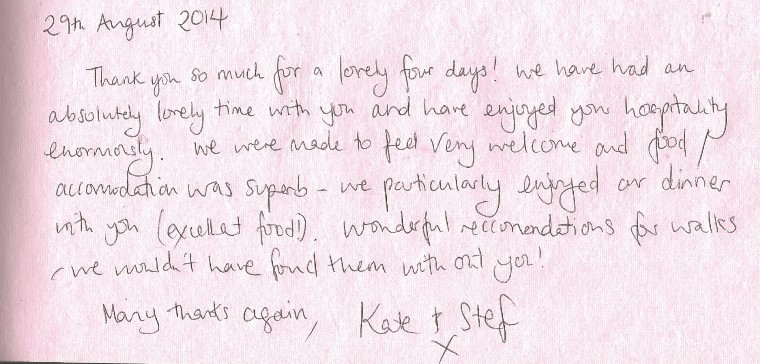 29th August 2014
Thank you so much for a lovely four days! We have had an
absolutely lovely time with you and have enjoyed your hospitality
enormously. We were made to feel very welcome and food /
accomodation was superb - we particularly enjoyed our dinner
with you (excellent food!). Wonderful reccomendations for walks
- we wouldn't have found them with out you!
Many thanks again, Kate & Stef
x